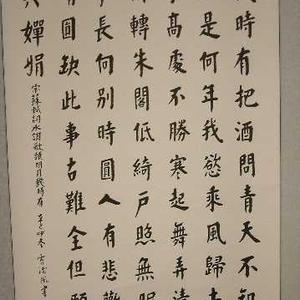 時有把酒問青天不知
是何年我慾乘風歸
高處不勝寒起舞弄清
轉朱閣低綺戶照無眠
長何別時圓人有悲歡
圓缺此事古難全但願
嬋娟
宋蘇軾詞水調歌頭明月幾時有